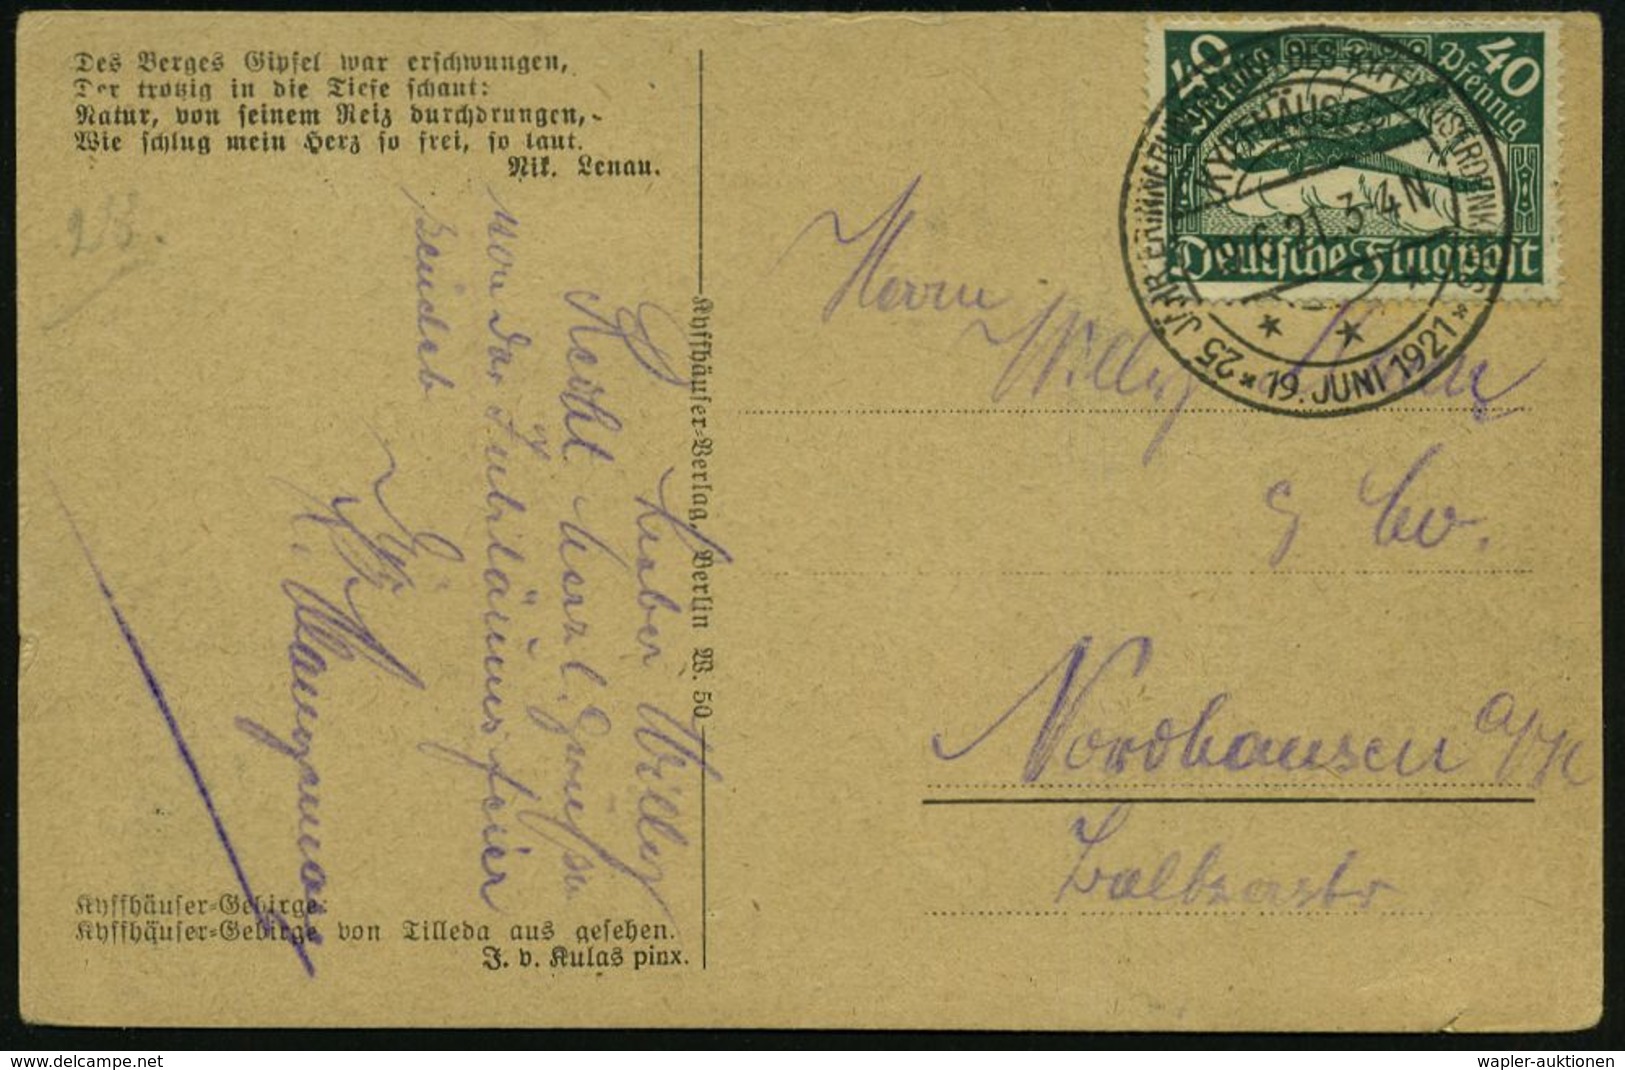 Des Berges Gipfel war erschwungen,
Der trotzig in die Tiefe schaut:
Natur, von seinem Reiz durchdrungen,
Wie schlug mein Herz so frei, so laut.
Nik. Lenau.
Lieber Willy
Recht herzl. Grüße
von der Jubiläumsfeier
sendet
Kyffhäuser-Gebirge:
Kyffhäuser-Gebirge von Tilleda aus gesehen.
J. v. Kulas pinx.
Kyffhäuser-Verlag, Berlin W. 50
40 Pfennig 40
Deutsche Flugpost
KYFFHÄUSER
19.6.21. 3-4 N
* 25 JAHR ERINNERUNG DES KYFFHÄUSERDENKMALS * 19. JUNI 1921 *
Herrn
Willy
Nordhausen a/H
delcampe.net
wapler-auktionen